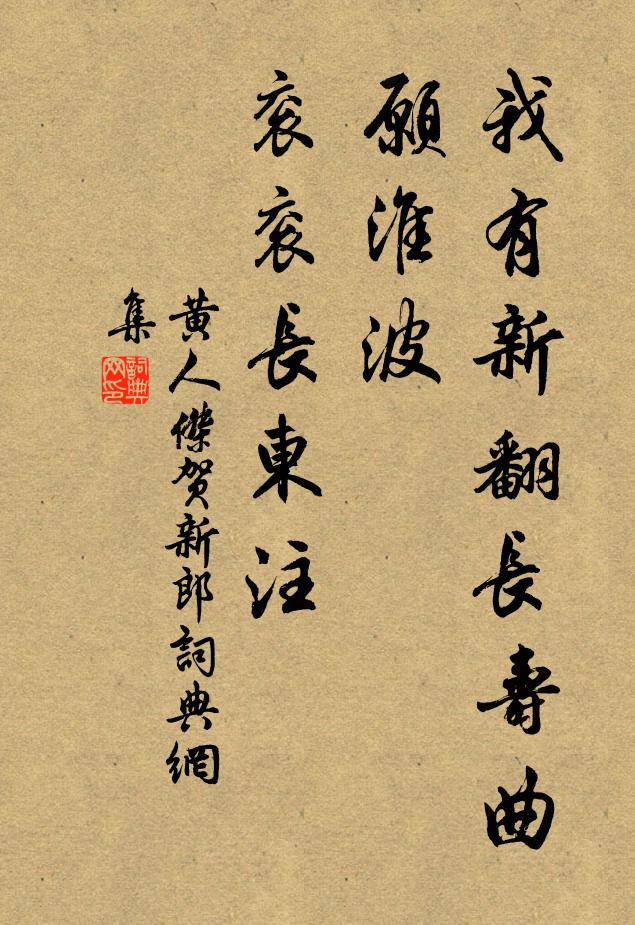 我有新翻長壽曲
願淮波
衮衮長東注
黄人傑賀新郎詞典網
集
詞典
网印